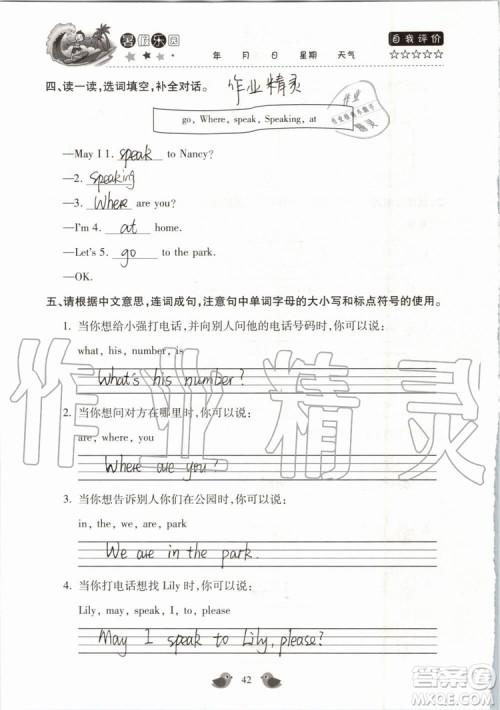 暑假乐园
年 月 日 星期 天气
自我评价
☆☆☆☆☆
四、读一读,选词填空,补全对话。 作业精灵
go, Where, speak, Speaking, at
作业
精灵
—May I 1. speak to Nancy?
—2. Speaking
—3. Where are you?
—I'm 4. at home.
—Let's 5. go to the park.
—OK.
五、请根据中文意思,连词成句,注意句中单词字母的大小写和标点符号的使用。
1. 当你想给小强打电话,并向别人问他的电话号码时,你可以说:
what, his, number, is
What's his number?
2. 当你想问对方在哪里时,你可以说:
are, where, you
Where are you?
3. 当你想告诉别人你们在公园时,你可以说:
in, the, we, are, park
We are in the park.
4. 当你打电话想找 Lily 时,你可以说:
Lily, may, speak, I, to, please
May I speak to Lily, please?
作业精灵
42
答案圈
MXQE.COM